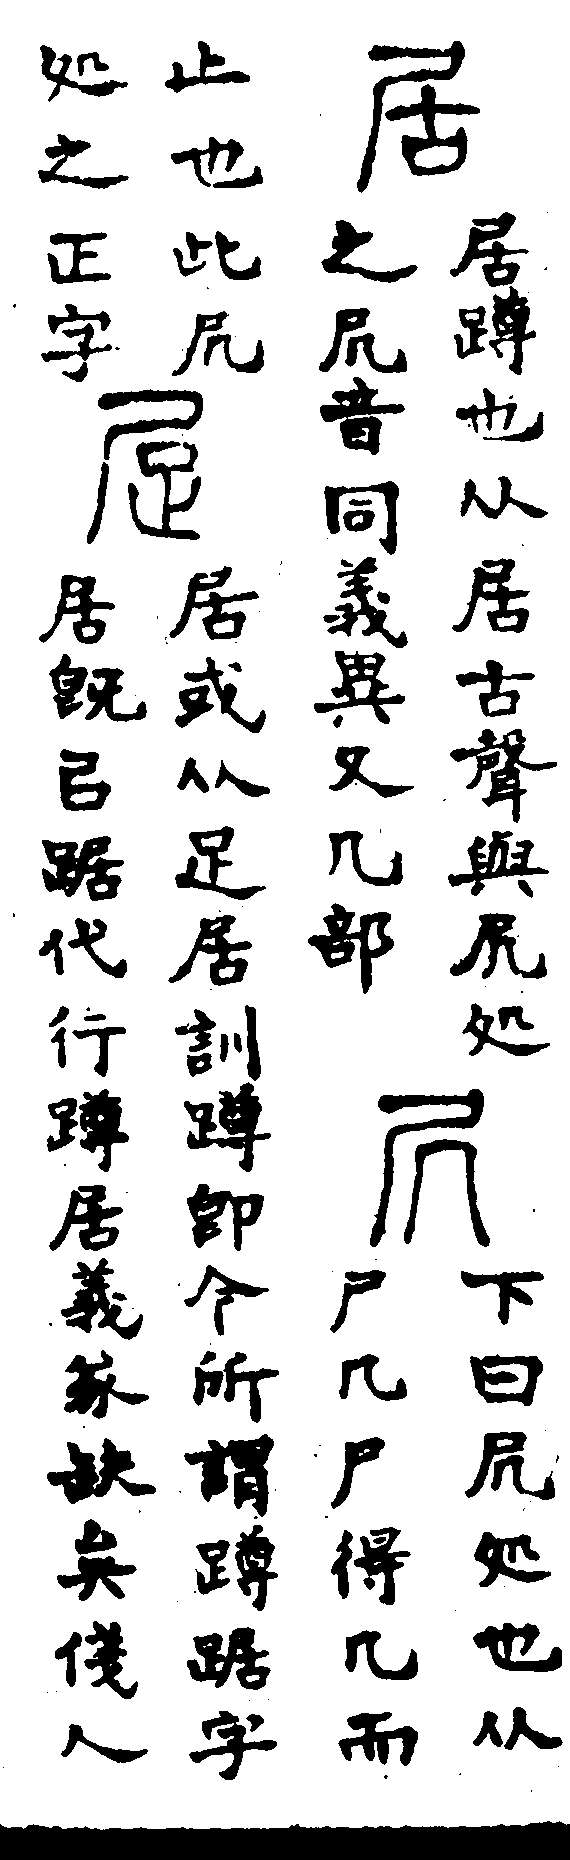 居
居蹲也从居古聲與凥処
之凥音同義異又几部
凥
下曰凥処也从
尸几尸得几而
止也此凥
処之正字
居或从足居訓蹲即今所謂蹲踞字
居既已踞代行蹲居義缺矣人